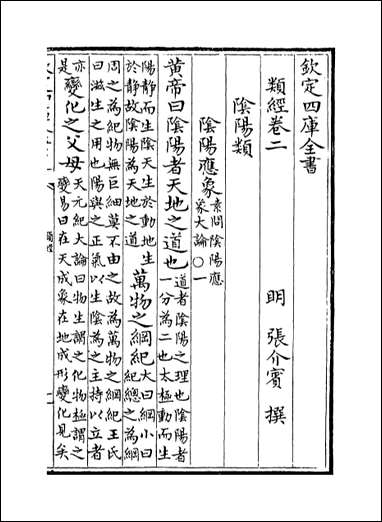 欽定四庫全書
類經卷二
明 張介賓 撰
陰陽類
陰陽應象 素問陰陽應
象大論○一
黄帝曰陰陽者天地之道也 道者陰陽之理也陰陽者
一分為二也太極動而生
陽靜而生陰天生於動地生
於靜故陰陽為天地之道
萬物之綱紀 大曰綱小曰
紀總之為綱
周之為紀物無巨細莫不由之故為萬物之綱紀王氏
曰滋生之用也陽與之正氣以生陰為之主持以立者
亦
是
變化之父母 天元紀大論曰物生謂之化物極謂之
變易曰在天成象在地成形變化見矣
類經